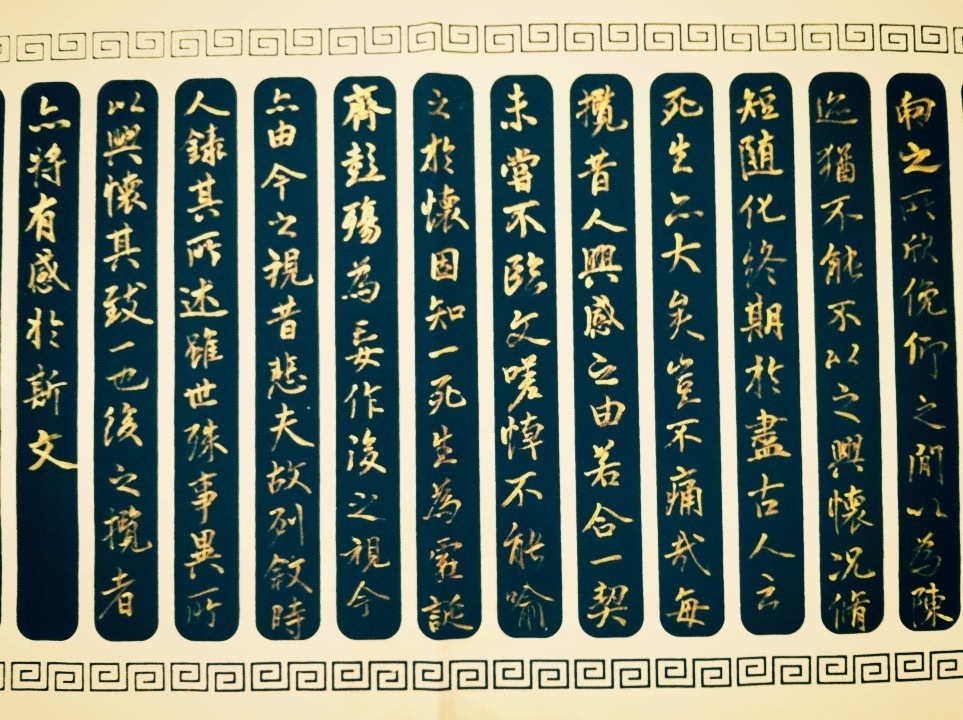 向之所欣俛仰之間以為陳
迹猶不能不以之興懷況脩
短随化終期於盡古人云
死生亦大矣豈不痛哉每
攬昔人興感之由若合一契
未嘗不臨文嗟悼不能喻
之於懷固知一死生為虛誕
齊彭殤為妄作後之視今
亦由今之視昔悲夫故列敘時
人錄其所述雖世殊事異所
以興懷其致一也後之攬者
亦將有感於斯文